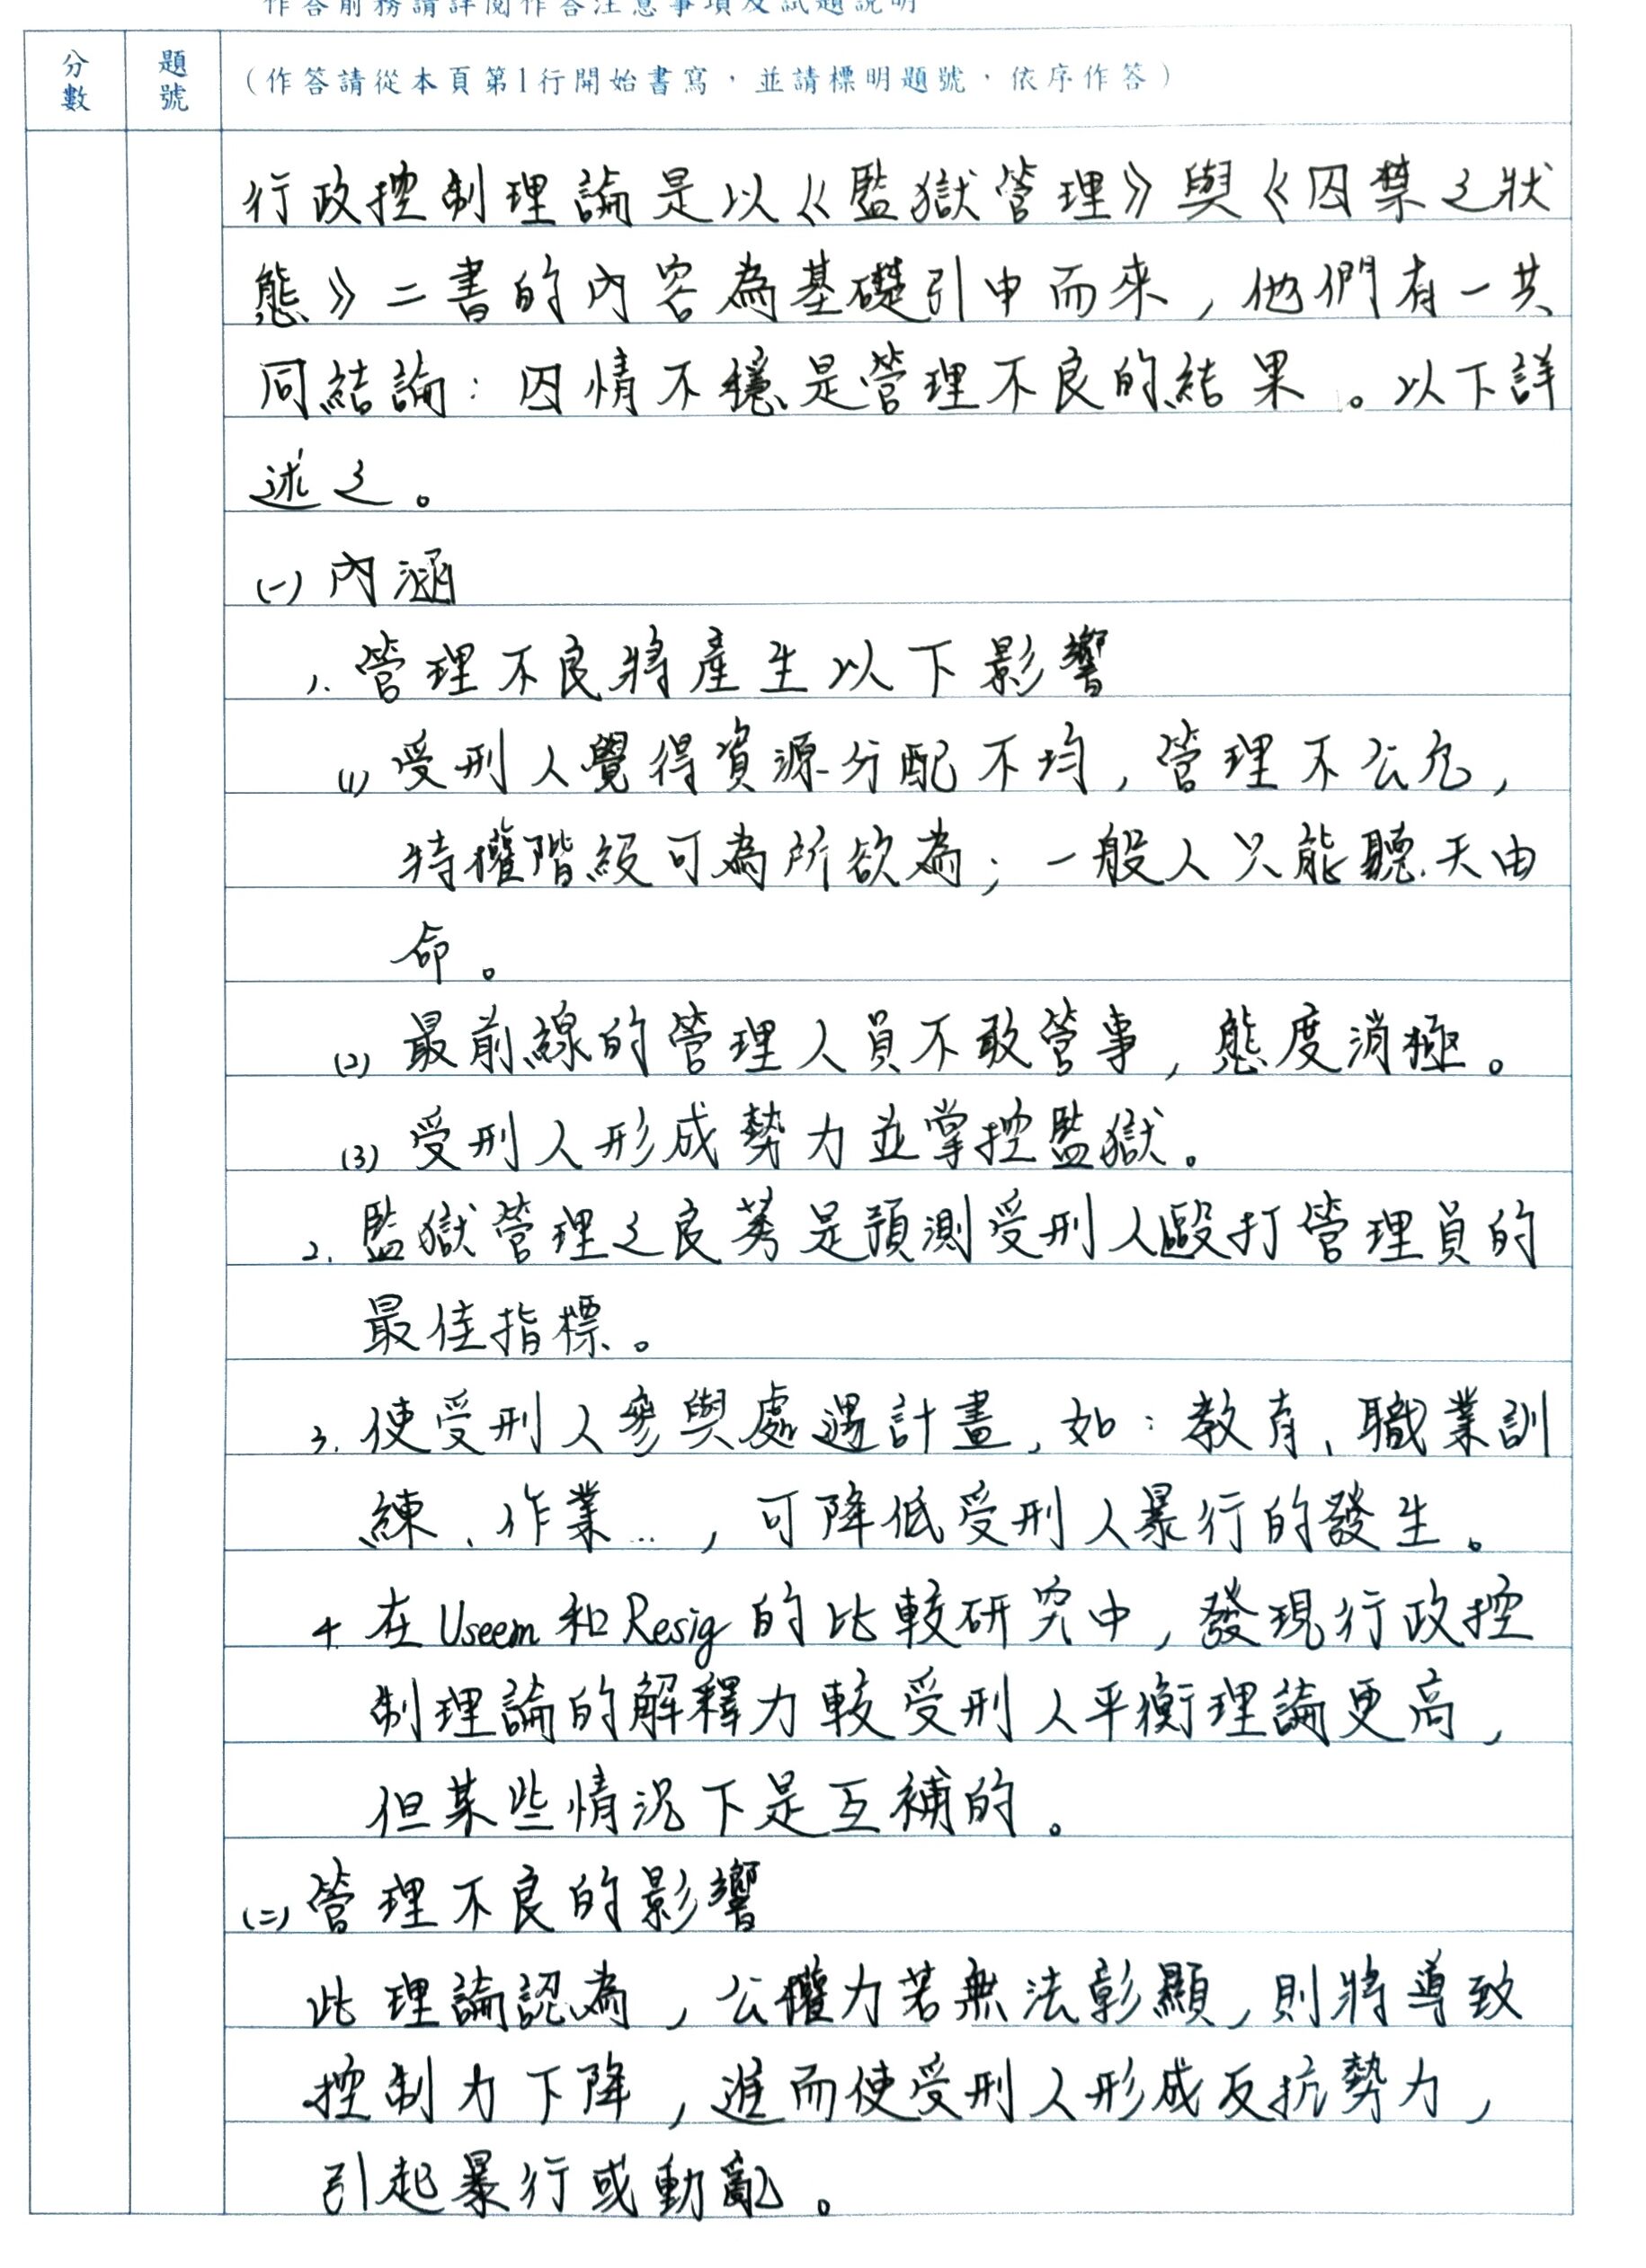 作答前務請詳閱作答注意事項及試題說明
分數
題號
（作答請從本頁第1行開始書寫，並請標明題號，依序作答）
行政控制理論是以《監獄管理》與《囚禁之狀
態》二書的內容為基礎引申而來，他們有一共
同結論：囚情不穩是管理不良的結果。以下詳
述之。
(一)內涵
1.管理不良將產生以下影響
(1)受刑人覺得資源分配不均，管理不公允，
特權階級可為所欲為；一般人只能聽天由
命。
(2)最前線的管理人員不敢管事，態度消極。
(3)受刑人形成勢力並掌控監獄。
2.監獄管理之良莠是預測受刑人毆打管理員的
最佳指標。
3.使受刑人參與處遇計畫，如：教育、職業訓
練、作業…，可降低受刑人暴行的發生。
4.在Useem和Resig的比較研究中，發現行政控
制理論的解釋力較受刑人平衡理論更高，
但某些情況下是互補的。
(二)管理不良的影響
此理論認為，公權力若無法彰顯，則將導致
控制力下降，進而使受刑人形成反抗勢力，
引起暴行或動亂。